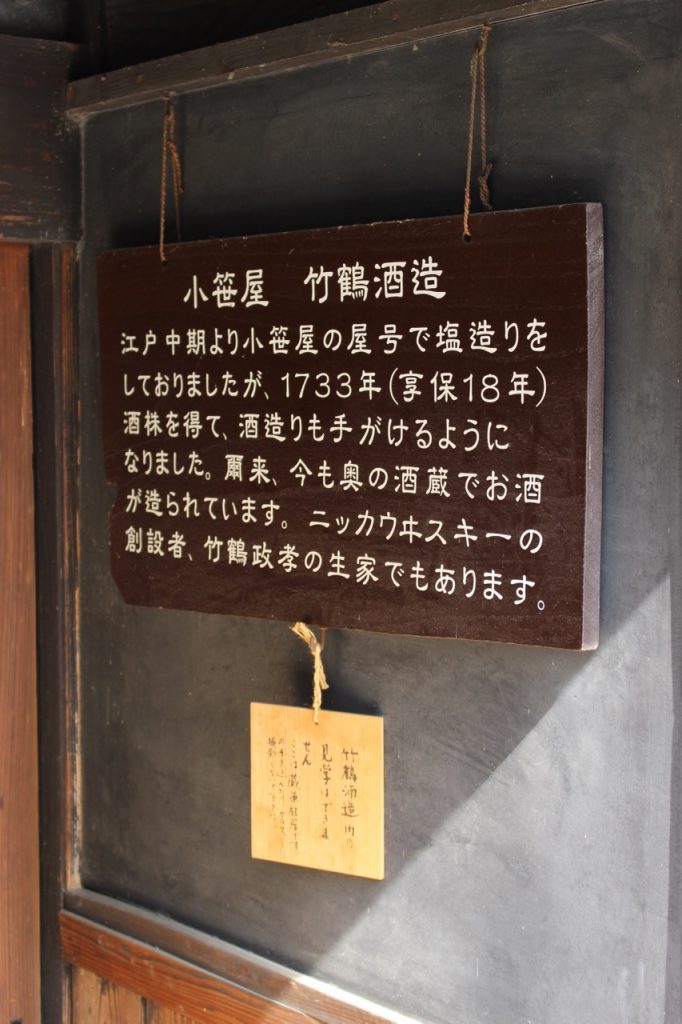 小笹屋　竹鶴酒造
江戸中期より小笹屋の屋号で塩造りを
しておりましたが、1733年(享保18年)
酒株を得て、酒造りも手がけるように
なりました。爾来、今も奥の酒蔵でお酒
が造られています。ニッカウヰスキーの
創設者、竹鶴政孝の生家でもあります。
竹鶴酒造内の
見学はできま
せん
ここは蔵兼住居です